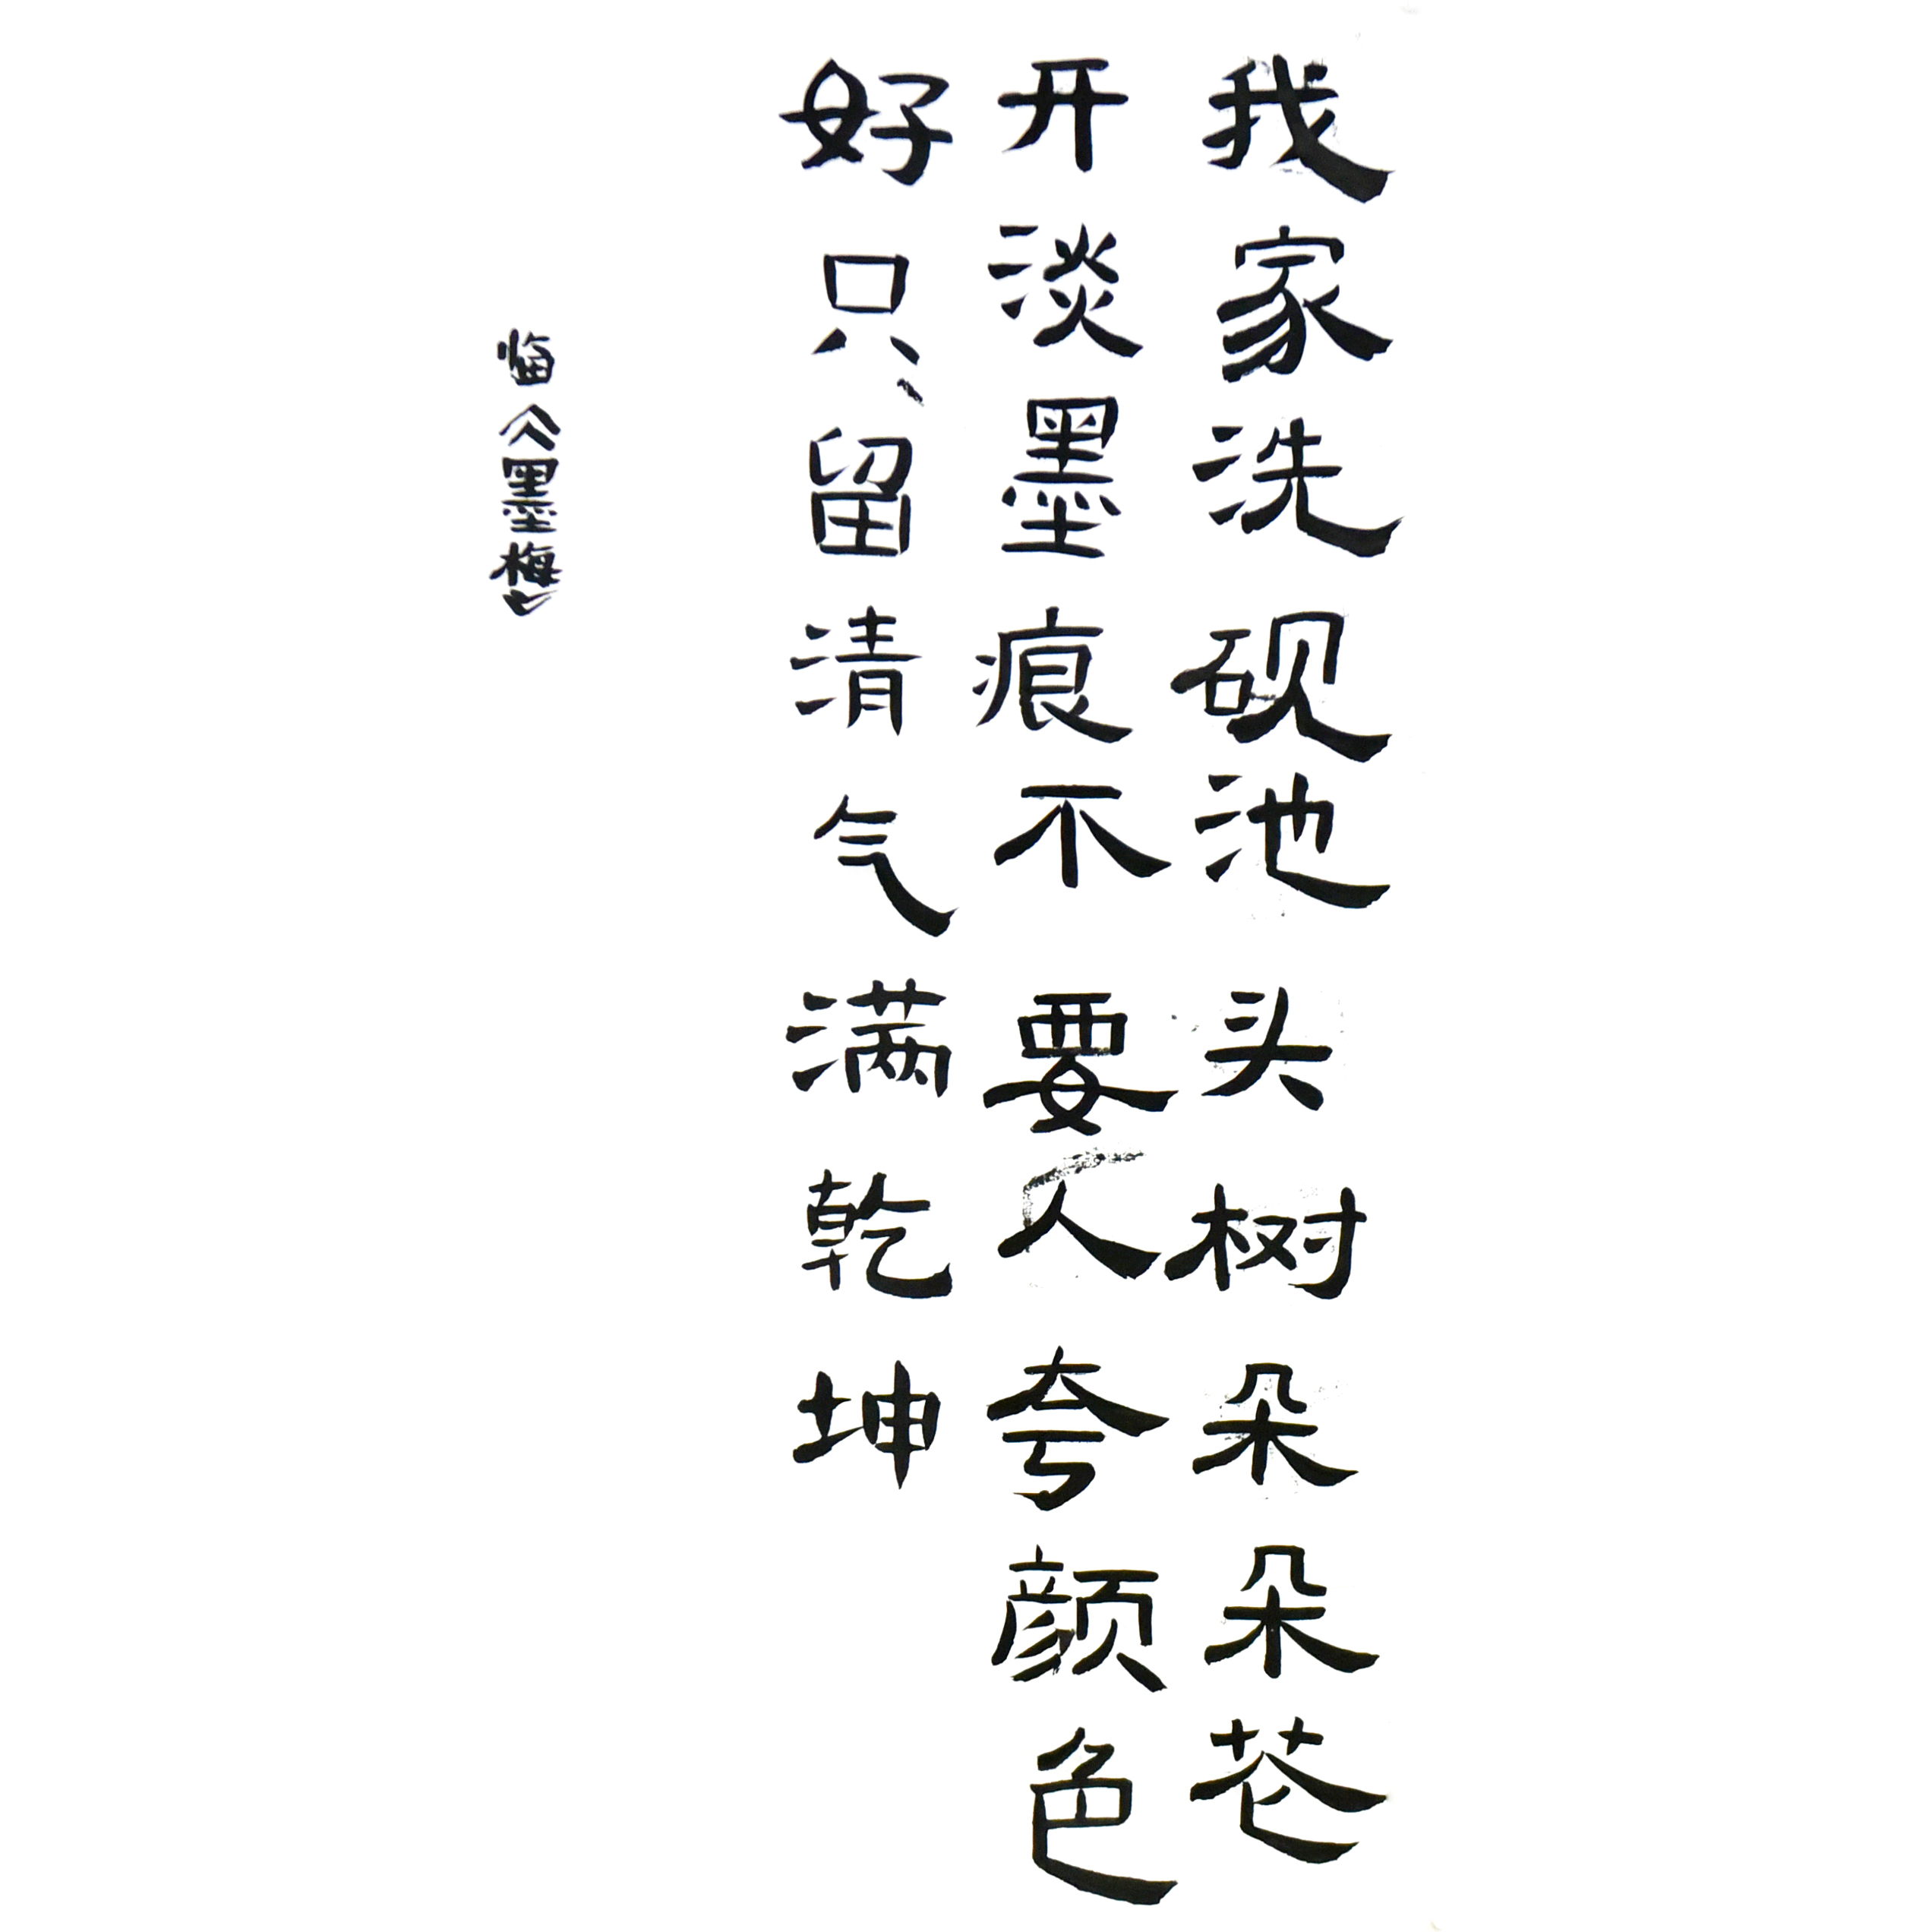 我家洗砚池头树朵朵花
开淡墨痕不要人夸颜色
好只留清气满乾坤
临《墨梅》